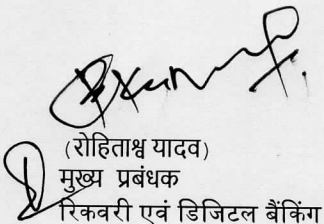 (रोहिताश्व यादव)
मुख्य प्रबंधक
रिकवरी एवं डिजिटल बैंकिंग